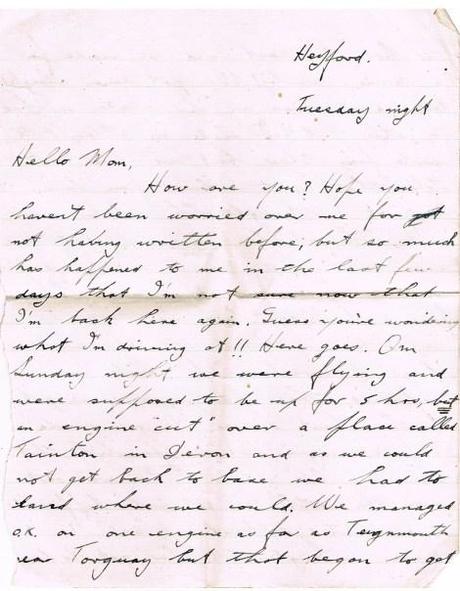 Heyford.
Tuesday night
Hello Mom,
How are you? Hope you
havent been worried over me for
not having written before, but so much
has happened to me in the last few
days that I'm not sure now that
I'm back here again. Guess you're wondering
what I'm driving at!! Here goes. On
Sunday night we were flying and
were supposed to be up for 5 hrs, but
an engine "cut" over a place called
Tainton in Devon and as we could
not get back to base we had to
land where we could. We managed
O.K. on one engine as far as Teignmouth
near Torquay but that began to get